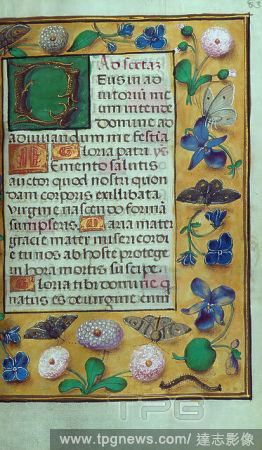 83
Ad sextaz
Deus in ad
iutoriū me
um intende
domine ad
adiuuandum me festia
Gloria patri ys
Memento salutis
auctor quod nostri quon
dam corporis ex illibata
virgine nascendo formā
sumpseris. Maria mater
gracie mater misericordi
e tu nos ab hoste protege
in hora mortis suscipe.
Gloria tibi domine q
natus es de virgine cum
TPG
www.tpgnews.com / 達志影像